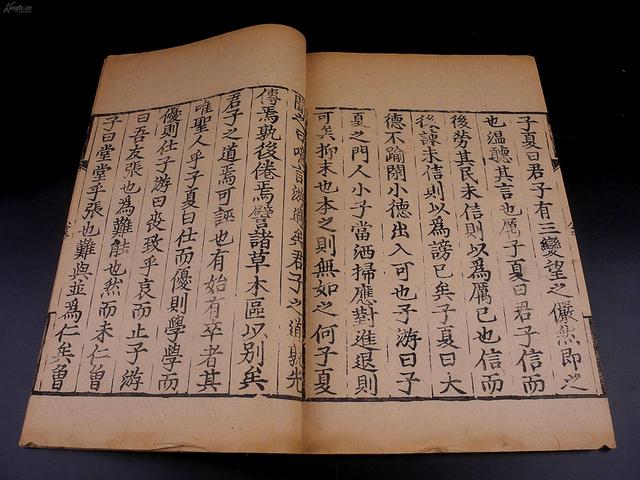 子夏曰君子有三變望之儼然即之
也温聽其言也厲子夏曰君子信而
後勞其民未信則以爲厲己也信而
後諫未信則以爲謗已矣子夏曰大
德不踰閑小德出入可也子游曰子
夏之門人小子當洒掃應對進退則
可矣抑末也本之則無如之何子夏
聞之曰噫言游過矣君子之道孰先
傳焉孰後倦焉譬諸草木區以別矣
君子之道焉可誣也有始有卒者其
唯聖人乎子夏曰仕而優則學學而
優則仕子游曰喪致乎哀而止子游
曰吾友張也爲難能也然而未仁曾
子曰堂堂乎張也難與並爲仁矣曾
Kongfz.cn